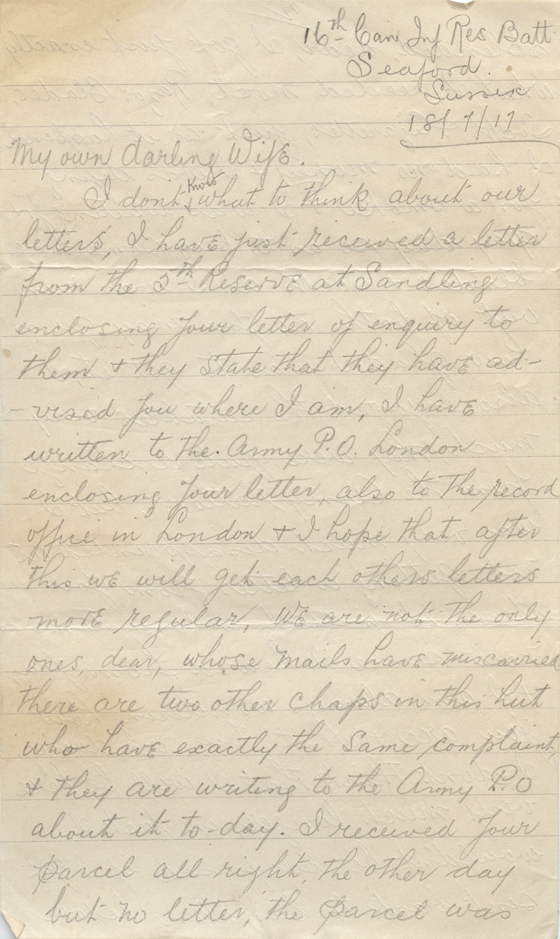 16th Can Inf Res Batt
Seaford.
Sussex
18/7/17
My own darling Wife.
I dont know what to think about our
letters, I have just received a letter
from the 5th Reserve at Sandling
enclosing your letter of enquiry to
them & they state that they have ad-
-vised you where I am, I have
written to the Army P.O. London
enclosing your letter, also to the record
office in London & I hope that after
this we will get each others letters
more regular, We are not the only
ones dear, whose mails have miscarried
there are two other chaps in this hut
who have exactly the same complaint,
& they are writing to the Army P.O
about it to-day. I received your
parcel all right, the other day
but no letter, the parcel was